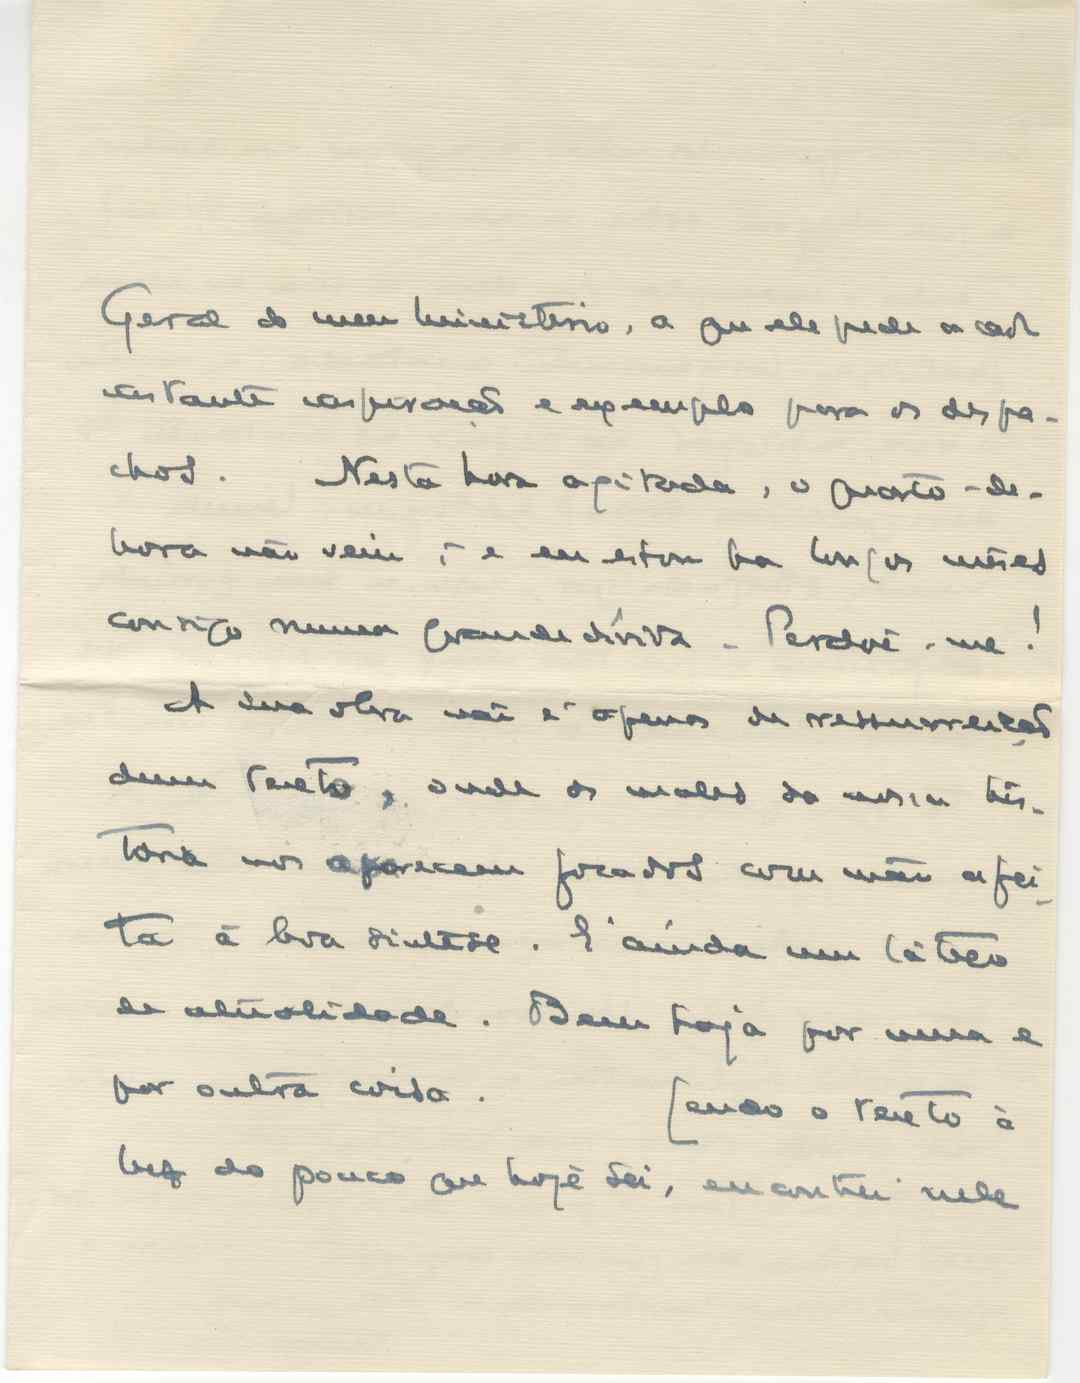 Geral do meu Ministério, a que ele pede a cada
instante inspiração e exemplo para os despa-
chos. Nesta hora agitada, o quarto-de-
hora não vem; e eu estou ha longos mêses
consigo numa grande dívida. Perdoe-me!
A sua obra não é apenas de ressurreição
dum texto, onde os males da nossa his-
tória nos aparecem focados com mão afei-
ta à boa síntese. E' ainda um látego
de atualidade. Bem haja por uma e
por outra coisa. Lendo o texto à
luz do pouco que hoje sei, encontrei nele